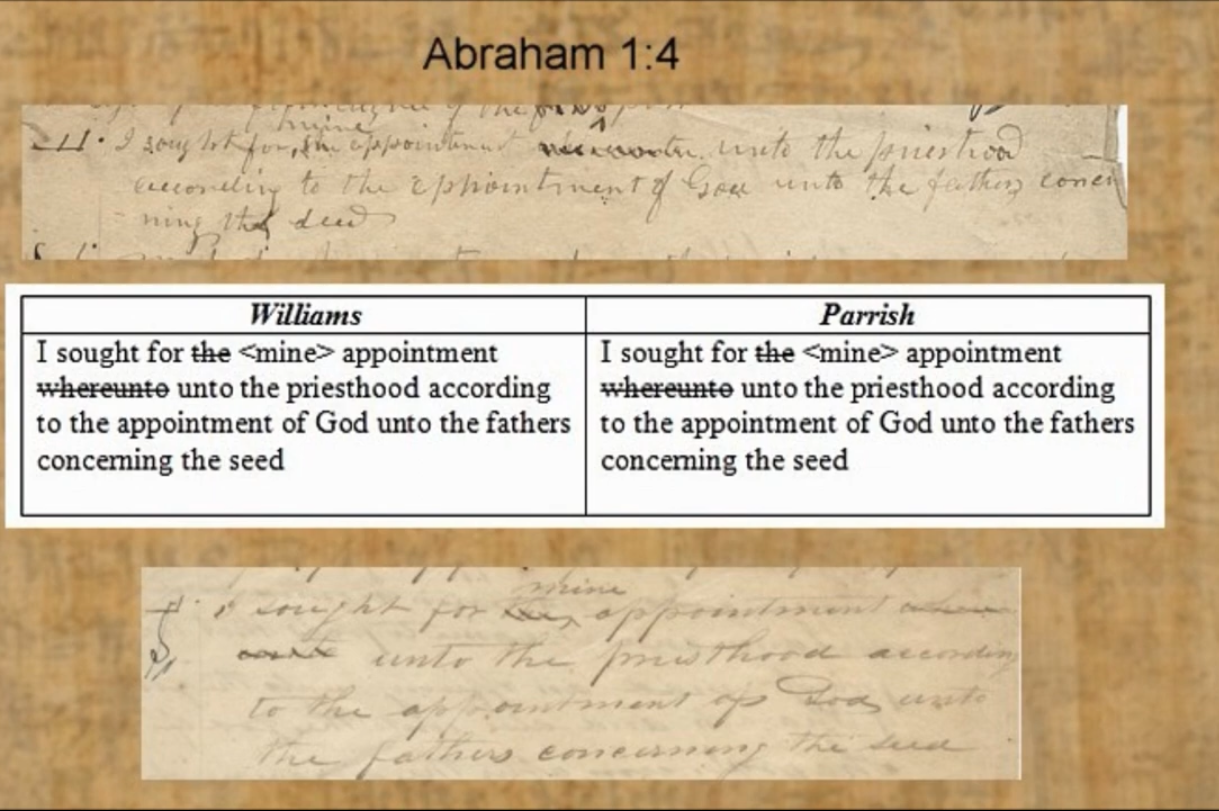 Abraham 1:4
mine
11. I sought for, the appointment whereunto unto the priesthood
according to the appointment of God unto the fathers concer
ning the seed
Williams
I sought for the <mine> appointment
whereunto unto the priesthood according
to the appointment of God unto the fathers
concerning the seed
Parrish
I sought for the <mine> appointment
whereunto unto the priesthood according
to the appointment of God unto the fathers
concerning the seed
mine
I sought for the appointment where
unto unto the priesthood according
to the appointment of God unto
the fathers concerning the seed